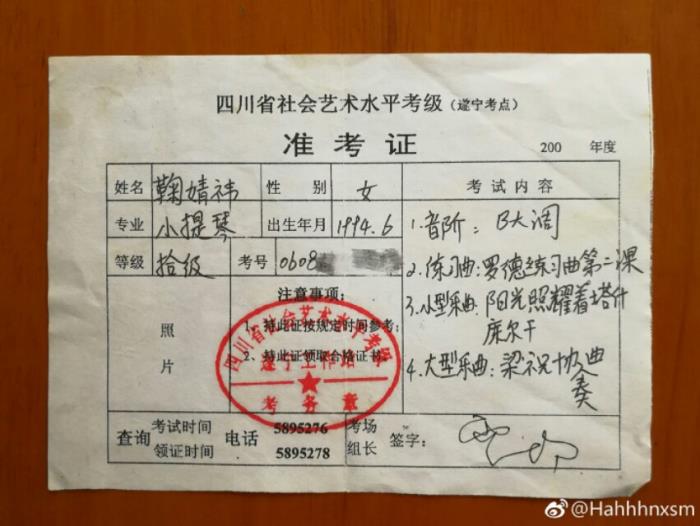 四川省社会艺术水平考级（遂宁考点）
准考证 200 年度
姓名 鞠婧祎 性别 女 考试内容
专业 小提琴 出生年月 1994.6
等级 拾级 考号 0608
照片
注意事项：
1、持此证按规定时间参考；
2、持此证领取合格证书。
1.音阶：B大调
2.练习曲：罗德练习曲第二课
3.小型乐曲：阳光照耀着塔什
库尔干
4.大型乐曲：梁祝协奏曲
四川省社会艺术水平考级
遂宁工作站
考务章
查询 考试时间 电话 5895276
领证时间 5895278
考场组长 签字：
@Hahhhnxsm